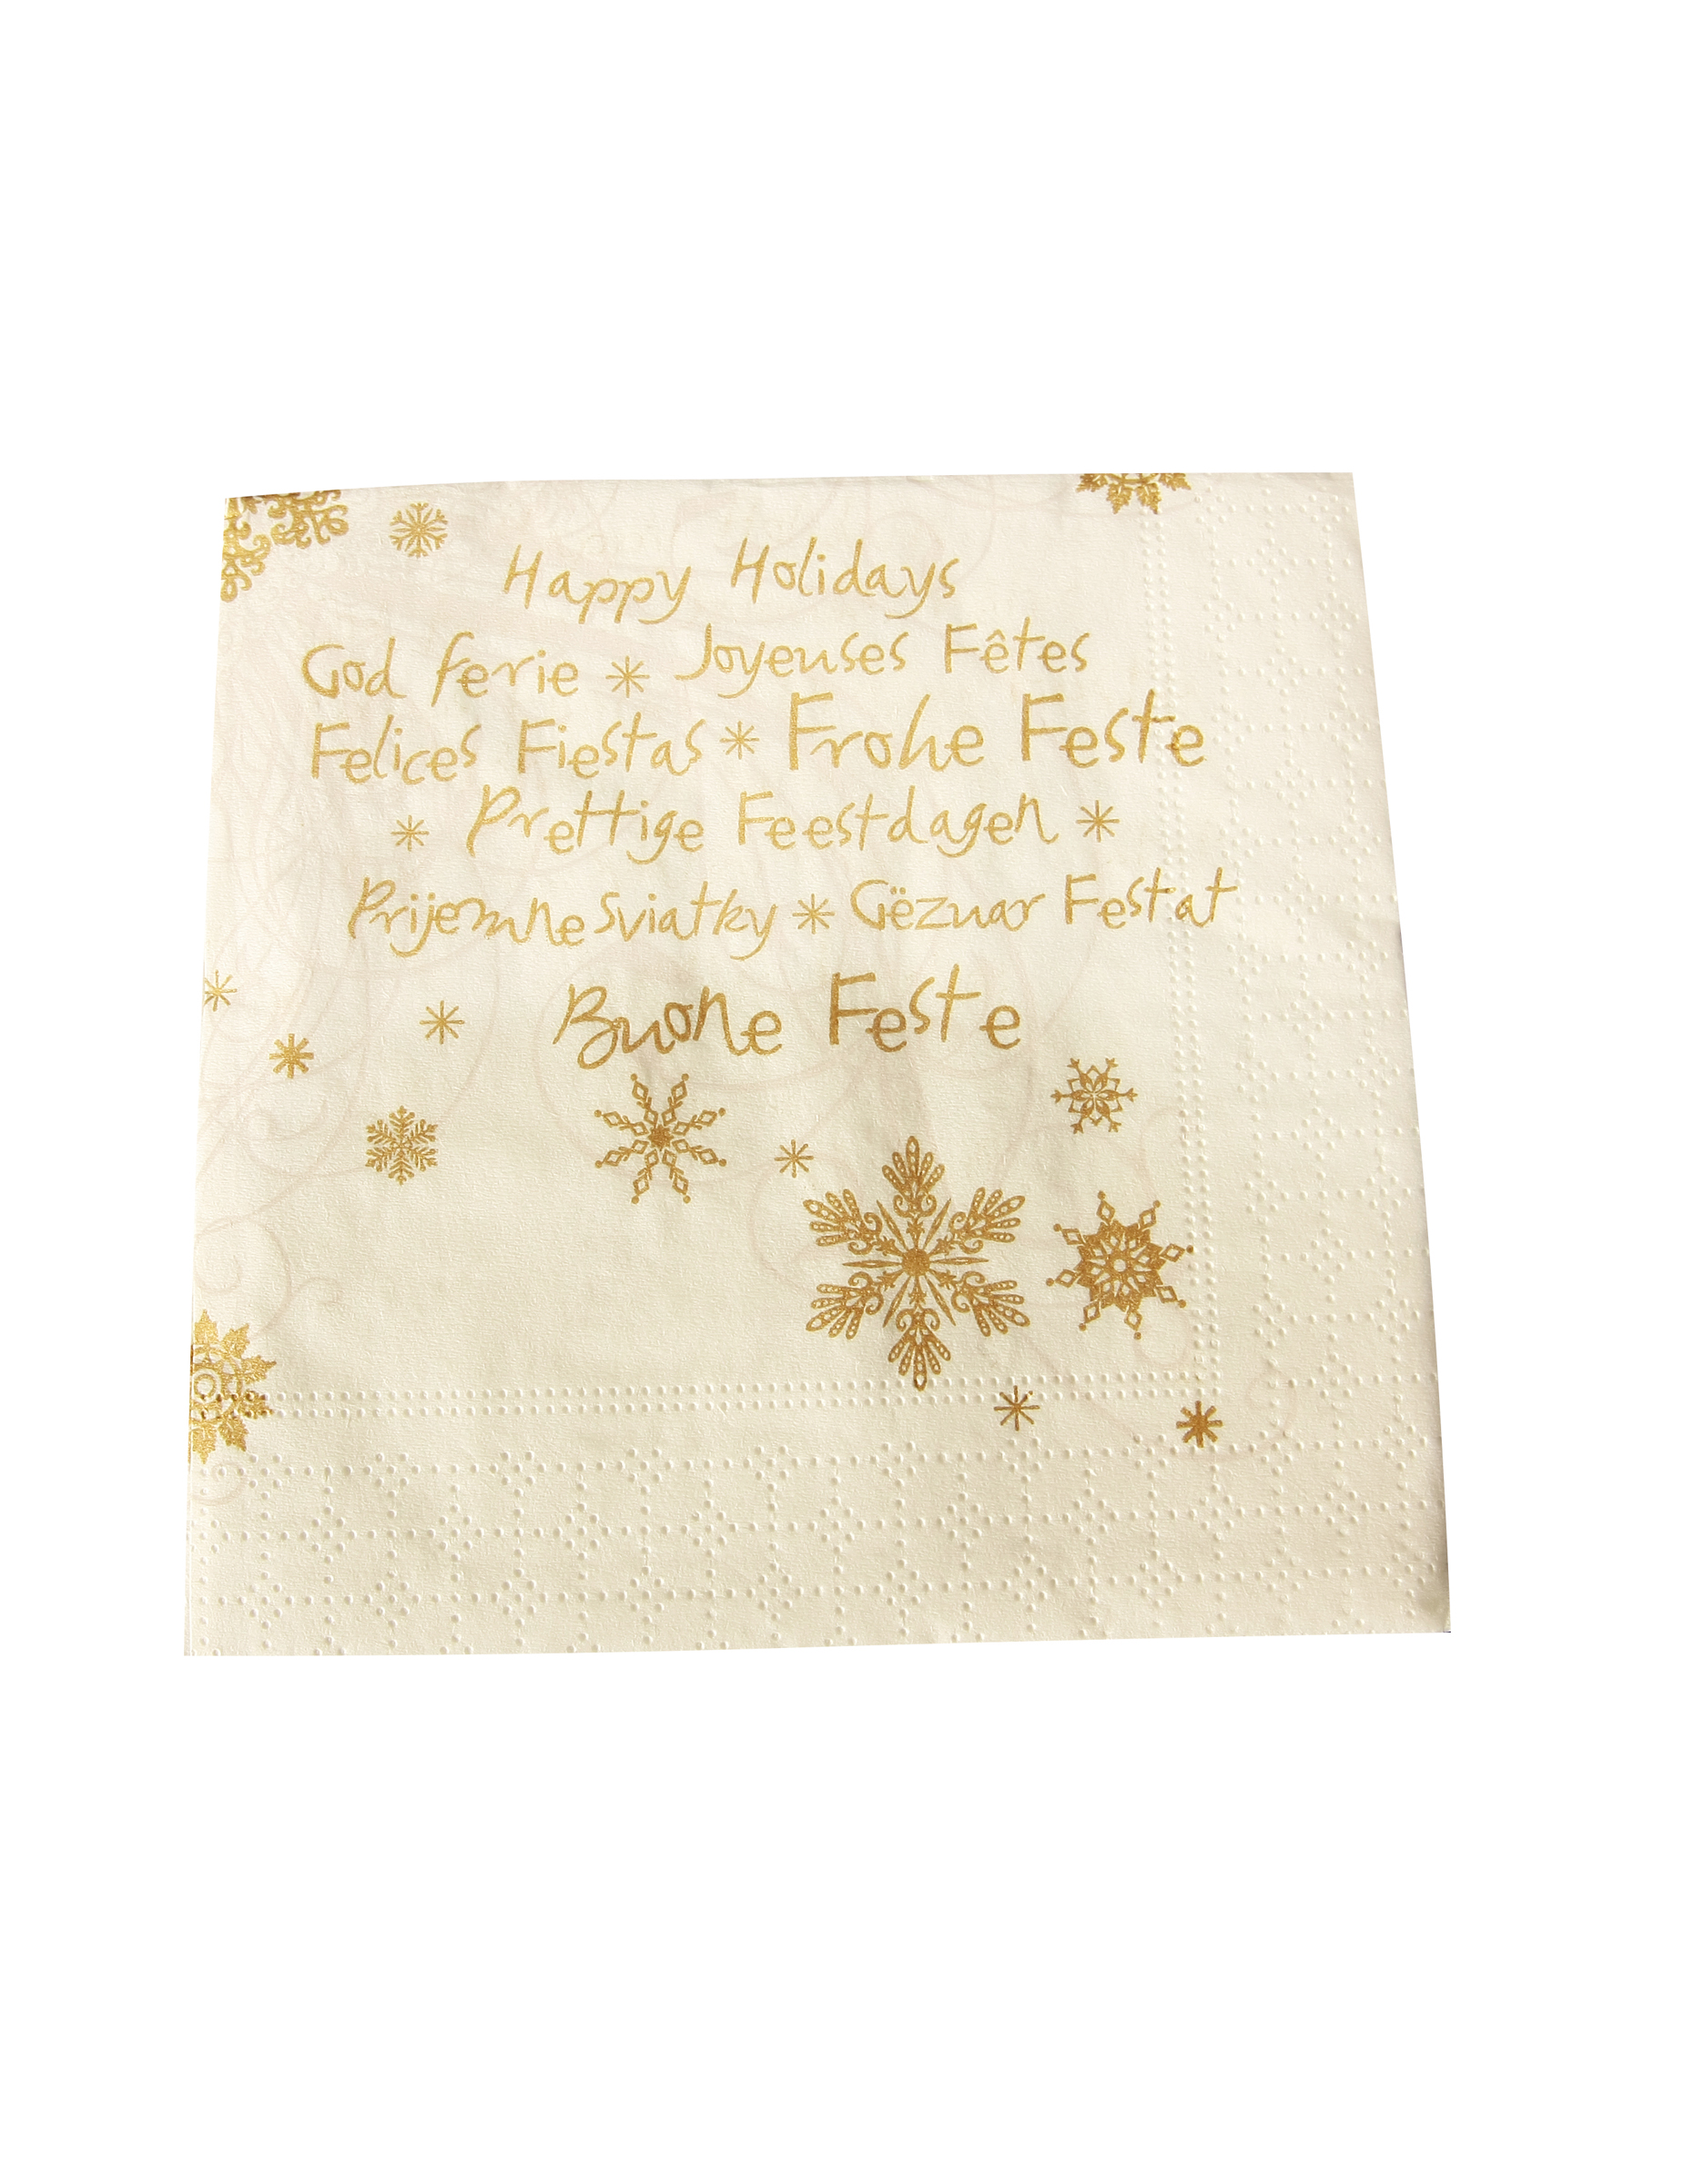 Happy Holidays
God ferie * Joyeuses Fêtes
Felices Fiestas * Frohe Feste
* Prettige Feestdagen *
Prijemne Sviatky * Gëzuar Festat
Buone Feste